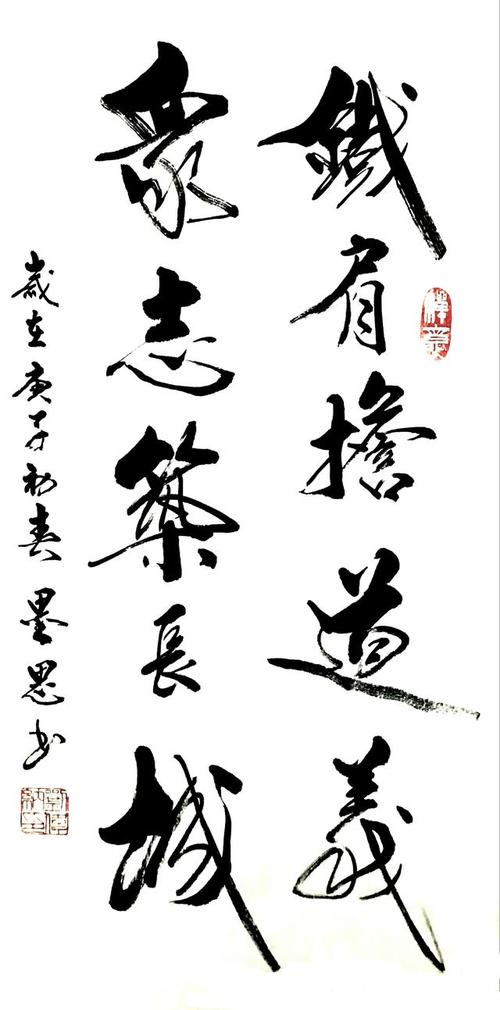 鐵肩擔道義
衆志築長城
歲在庚子初春墨思书